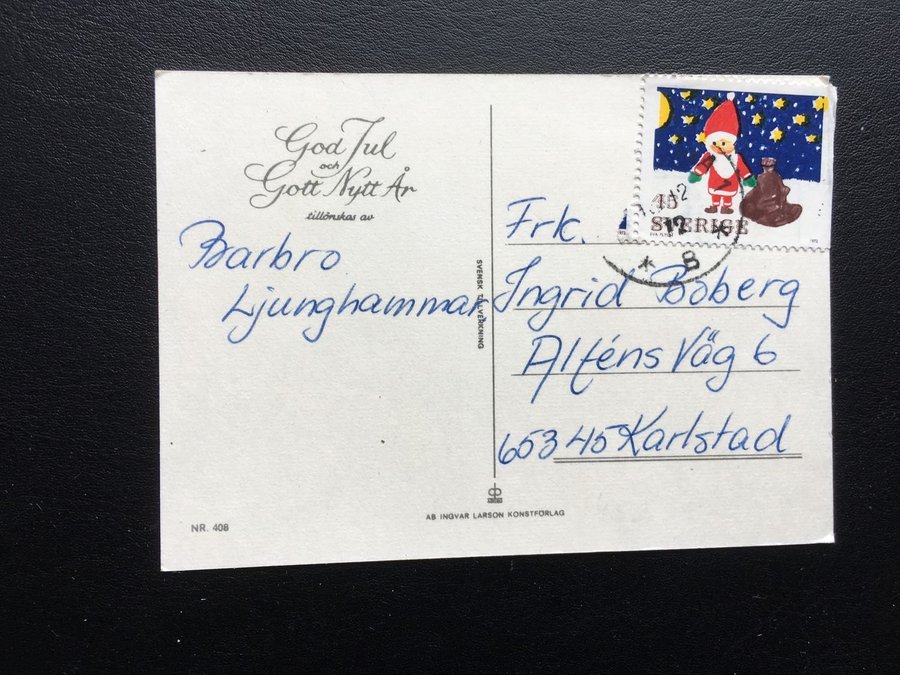 God Jul
och
Gott Nytt År
tillönskas av
Barbro
Ljunghammar
NR. 408
SVENSK TILLVERKNING
AB INGVAR LARSON KONSTFÖRLAG
45
SVERIGE
1972
12
12
* 8 *
Frk.
Ingrid Boberg
Alféns Väg 6
653 45 Karlstad